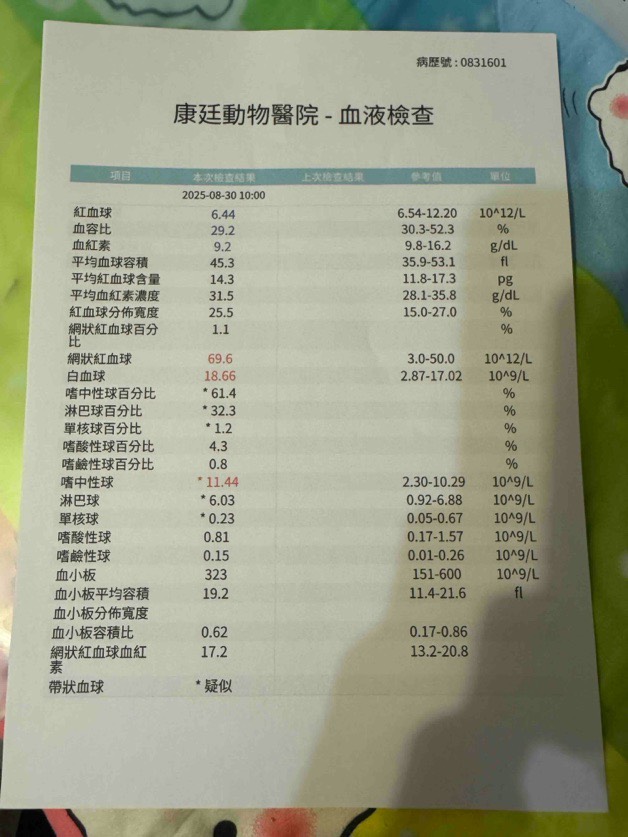 病歷號 : 0831601
康廷動物醫院 - 血液檢查
項目 本次檢查結果 上次檢查結果 參考值 單位
2025-08-30 10:00
紅血球 6.44 6.54-12.20 10^12/L
血容比 29.2 30.3-52.3 %
血紅素 9.2 9.8-16.2 g/dL
平均血球容積 45.3 35.9-53.1 fl
平均紅血球含量 14.3 11.8-17.3 pg
平均血紅素濃度 31.5 28.1-35.8 g/dL
紅血球分佈寬度 25.5 15.0-27.0 %
網狀紅血球百分 1.1 %
比
網狀紅血球 69.6 3.0-50.0 10^12/L
白血球 18.66 2.87-17.02 10^9/L
嗜中性球百分比 * 61.4 %
淋巴球百分比 * 32.3 %
單核球百分比 * 1.2 %
嗜酸性球百分比 4.3 %
嗜鹼性球百分比 0.8 %
嗜中性球 * 11.44 2.30-10.29 10^9/L
淋巴球 * 6.03 0.92-6.88 10^9/L
單核球 * 0.23 0.05-0.67 10^9/L
嗜酸性球 0.81 0.17-1.57 10^9/L
嗜鹼性球 0.15 0.01-0.26 10^9/L
血小板 323 151-600 10^9/L
血小板平均容積 19.2 11.4-21.6 fl
血小板分佈寬度
血小板容積比 0.62 0.17-0.86
網狀紅血球血紅 17.2 13.2-20.8
素
帶狀血球 * 疑似